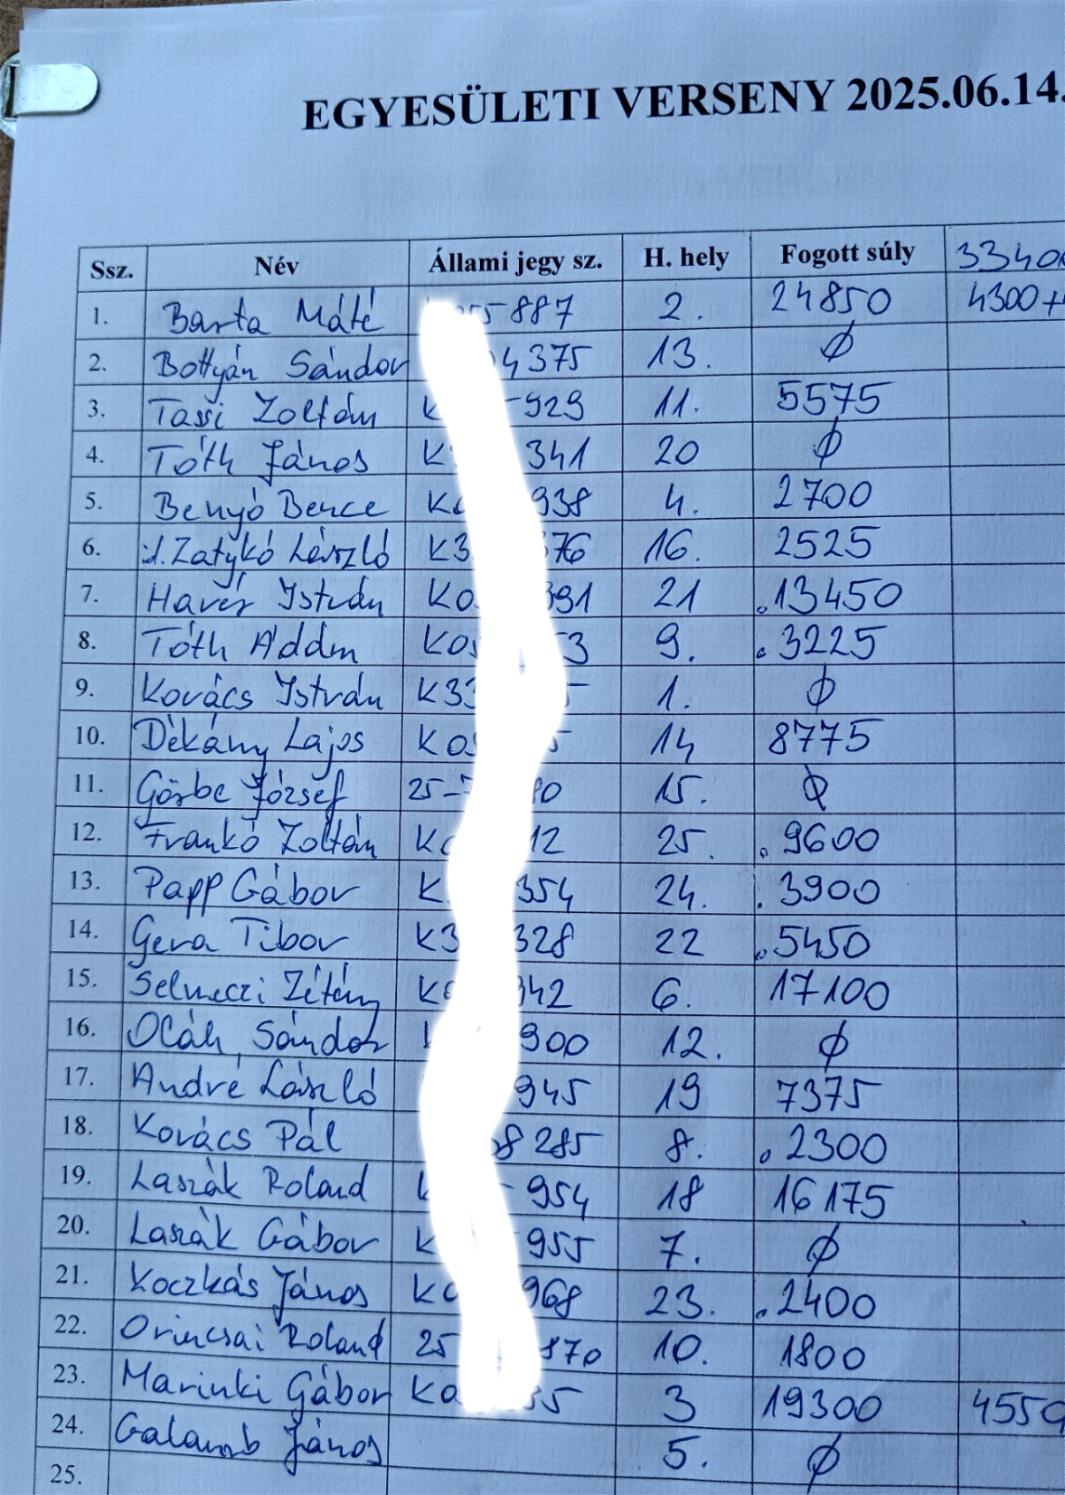 EGYESÜLETI VERSENY 2025.06.14.
Ssz. Név Állami jegy sz. H. hely Fogott súly 3340
1. Barta Máté 887 2. 24850 4300+
2. Bottyán Sándor 4375 13. ∅
3. Tassi Zoltán K 929 11. 5575
4. Tóth János K 341 20 ∅
5. Benyó Bence K 938 4. 2700
6. Zatykó László K3 76 16. 2525
7. István K0 391 21 13450
8. Tóth Ádám K0 3 9. 3225
9. Kovács István K33 1. ∅
10. Dékány Lajos K0 14 8775
11. Görbe József 25- 0 15. ∅
12. Frankó Zoltán K 12 25. 9600
13. Papp Gábor K 354 24. 3900
14. Gera Tibor K3 328 22 5450
15. Selmeczi Zétény K 342 6. 17100
16. Oláh Sándor 900 12. ∅
17. André László 945 19 7375
18. Kovács Pál 8285 8. 2300
19. Laszák Roland 954 18 16175
20. Laszák Gábor K 955 7. ∅
21. Koczkás János K 968 23. 2400
22. Orincsai Roland 25 170 10. 1800
23. Marinki Gábor K0 5 3 19300 4550
24. Galamb János 5. ∅
25.